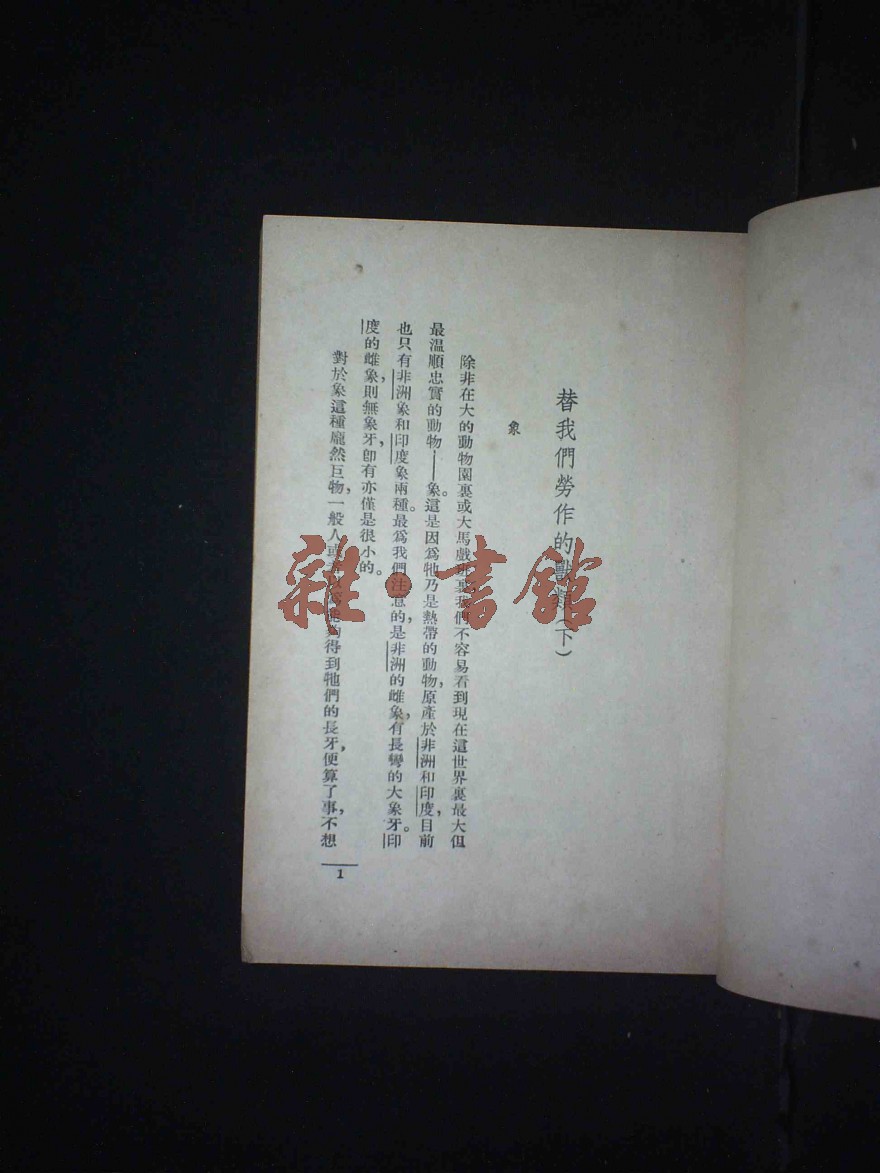 替我們勞作的獸類（下）
象
除非在大的動物園裏或大馬戲班裏，我們不容易看到現在這世界裏最大但
最溫順忠實的動物——象。這是因爲牠乃是熱帶的動物，原產於非洲和印度，目前
也只有非洲象和印度象兩種。最爲我們注意的，是非洲的雌象，有長彎的大象牙。印
度的雌象，則無象牙，卽有亦僅是很小的。
對於象這種龐然巨物，一般人或
得到牠們的長牙，便算了事，不想
1
雜·書館